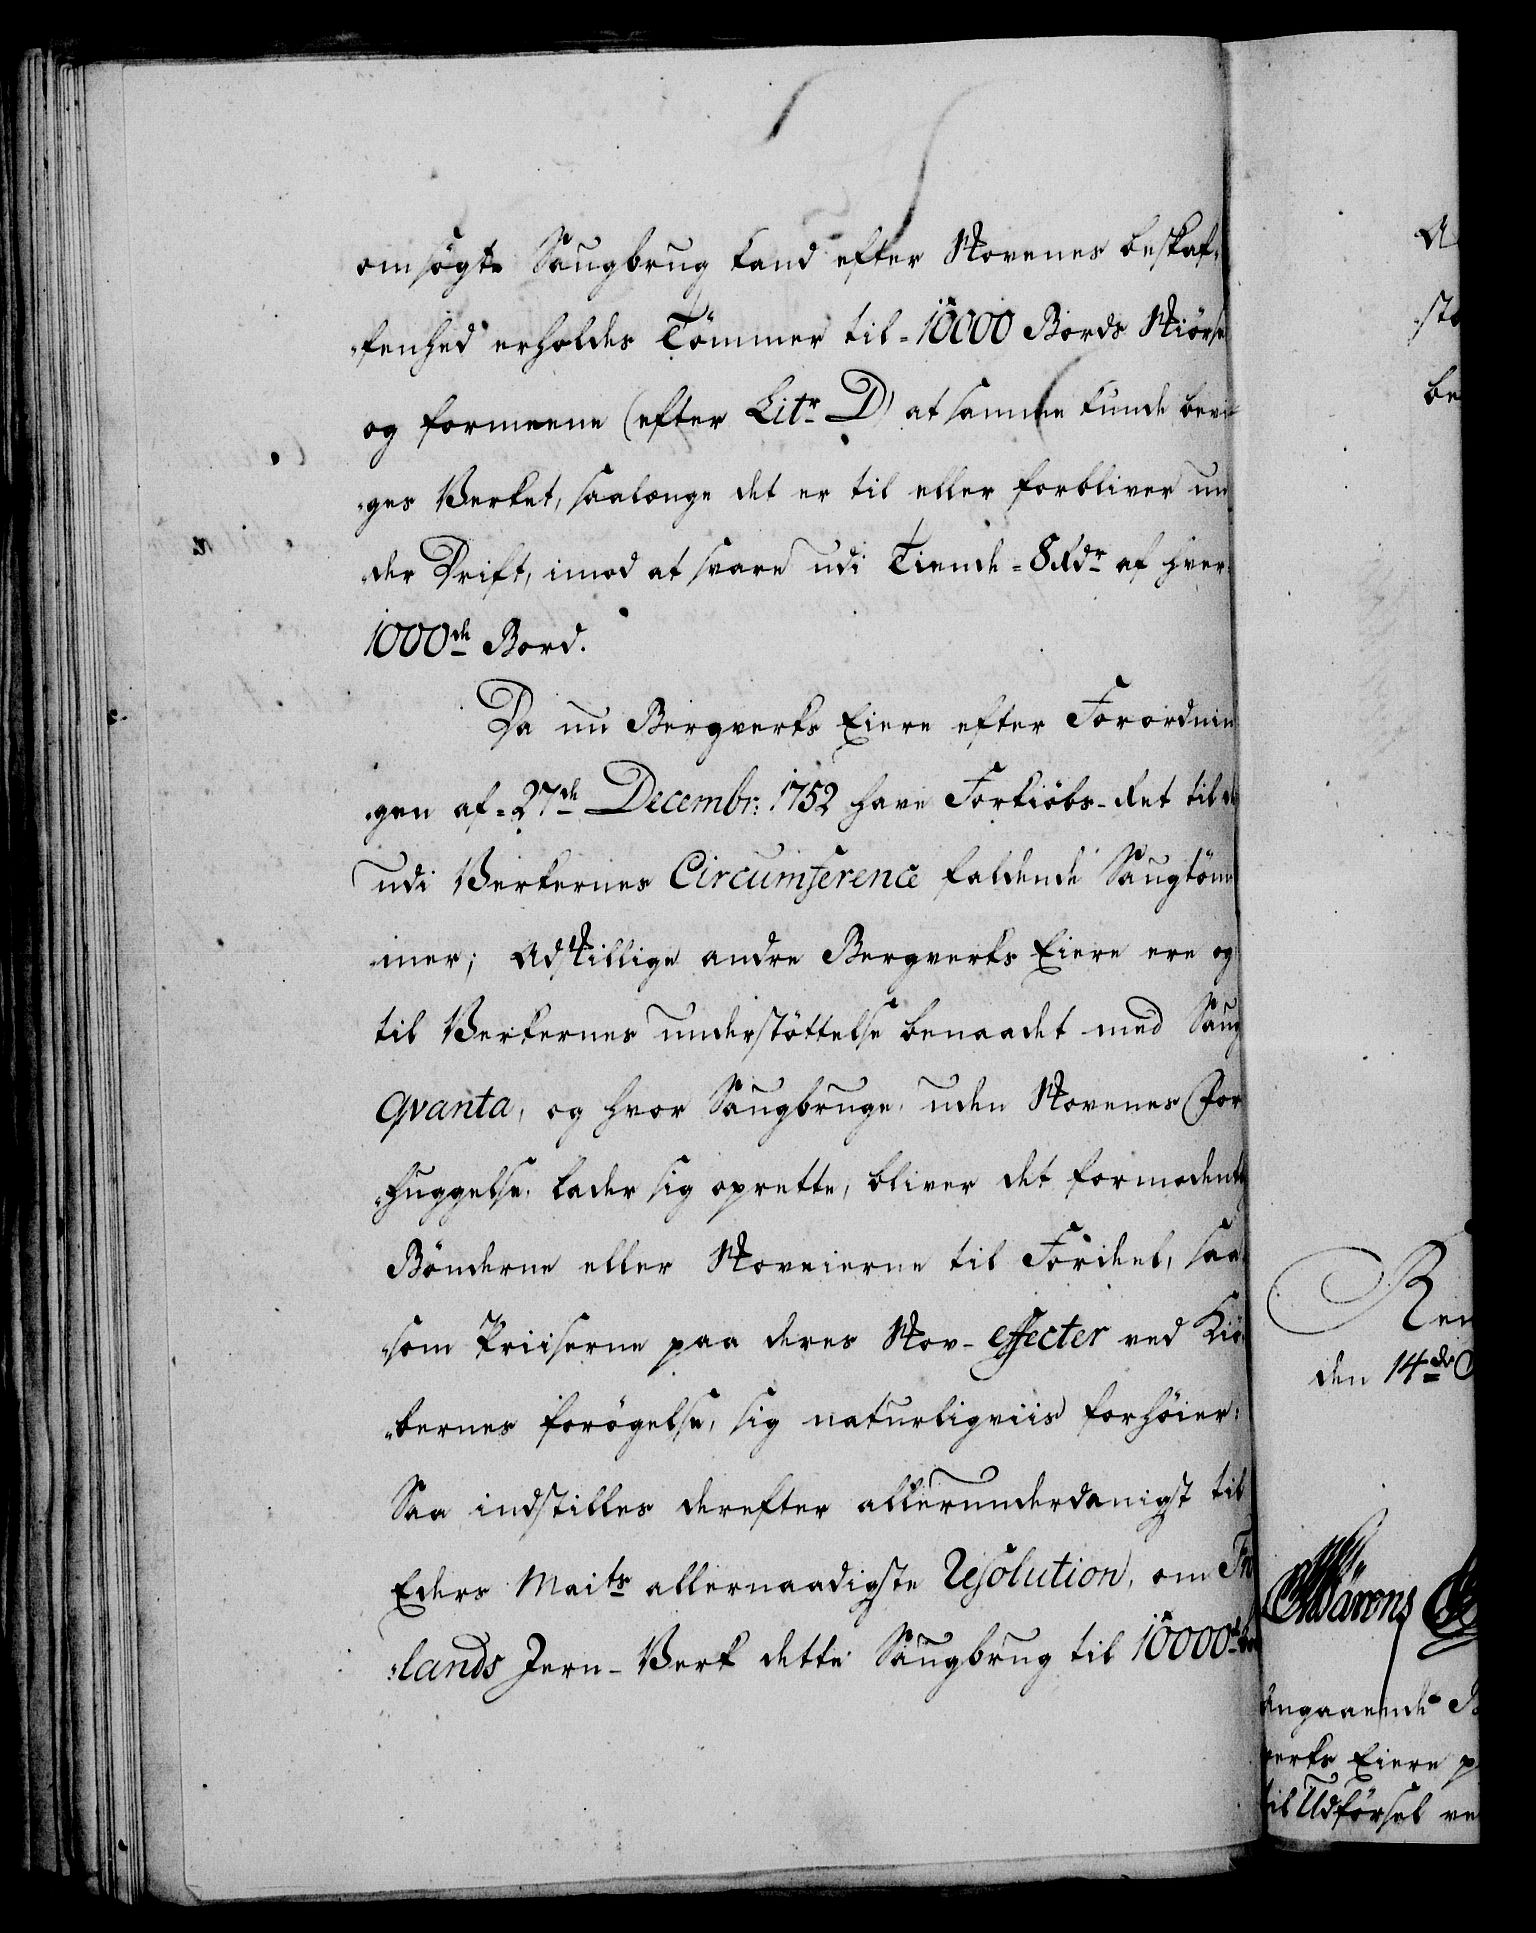 omsøgte Saugbrug kand efter Skovenes beskaf-
fenhed erholdes Tømmer til 10000 Bords Skiørsel
og formeene (efter Litr D) at samme kunde bevil-
ges Verket, saalænge det er til eller forbliver un-
der Drift, imod at svare udi Tiende 8 Rdr af hver
1000de Bord.
Da nu Bergverks Eiere efter Forordnin-
gen af 27de Decembr: 1752 have Forkiøbs-Ret til de
udi Verkernes Circumference faldende Saugtøm-
mer; Adskillige andre Bergverks Eiere ere og
til Verkernes understøttelse benaadet med Saug
Qvanta, og hvor Saugbruge, uden Skovenes For-
huggelse, lader sig oprette, bliver det formodentlig
Bønderne eller Skoveierne til Fordeel, saa-
som Priiserne paa deres Skov-Effecter ved Kiø-
bernes forøgelse, sig naturligviis forhøier:
Saa indstilles derefter allerunderdanigst til
Eders Maits allernaadigste Resolution, om
lands Jern-Verk dette Saugbrug til 10000de
sto
be
Ren
den 14de
Angaaende
verks Eiere p
til Udførsel ve